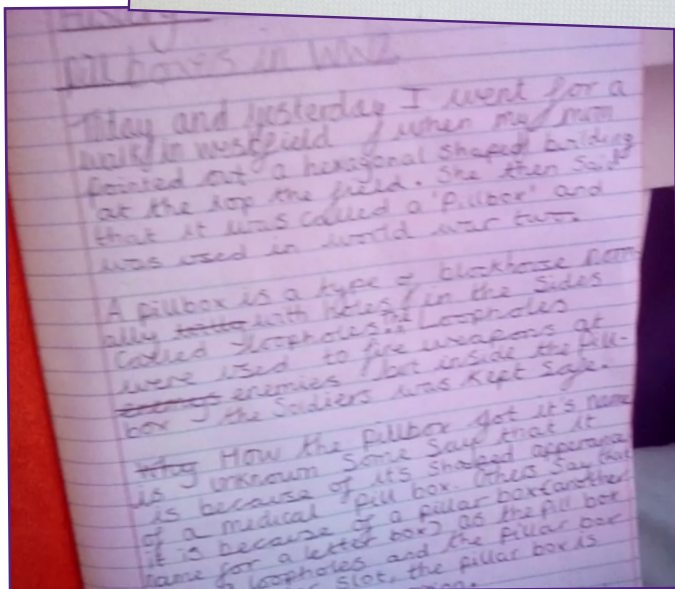 History
Pill boxes in WW2
Today and yesterday I went for a
walk in westfield when my mum
pointed out a hexagonal shaped building
at the top the field. She then said
that it was called a 'Pillbox' and
was used in world war two.
A pillbox is a type of blockhouse norm-
ally with holes in the sides
called loopholes. The Loopholes
were used to fire weapons at
enemies but inside the pill-
box the Soldiers was kept safe.
Why How the pillbox got it's name
is unknown some say that it
is because of it's shaped apperance
of a medical pill box. Others say that
it is because of a pillar box (another
name for a letter box) as the pill box
loopholes and the pillar box
slot, the pillar box is